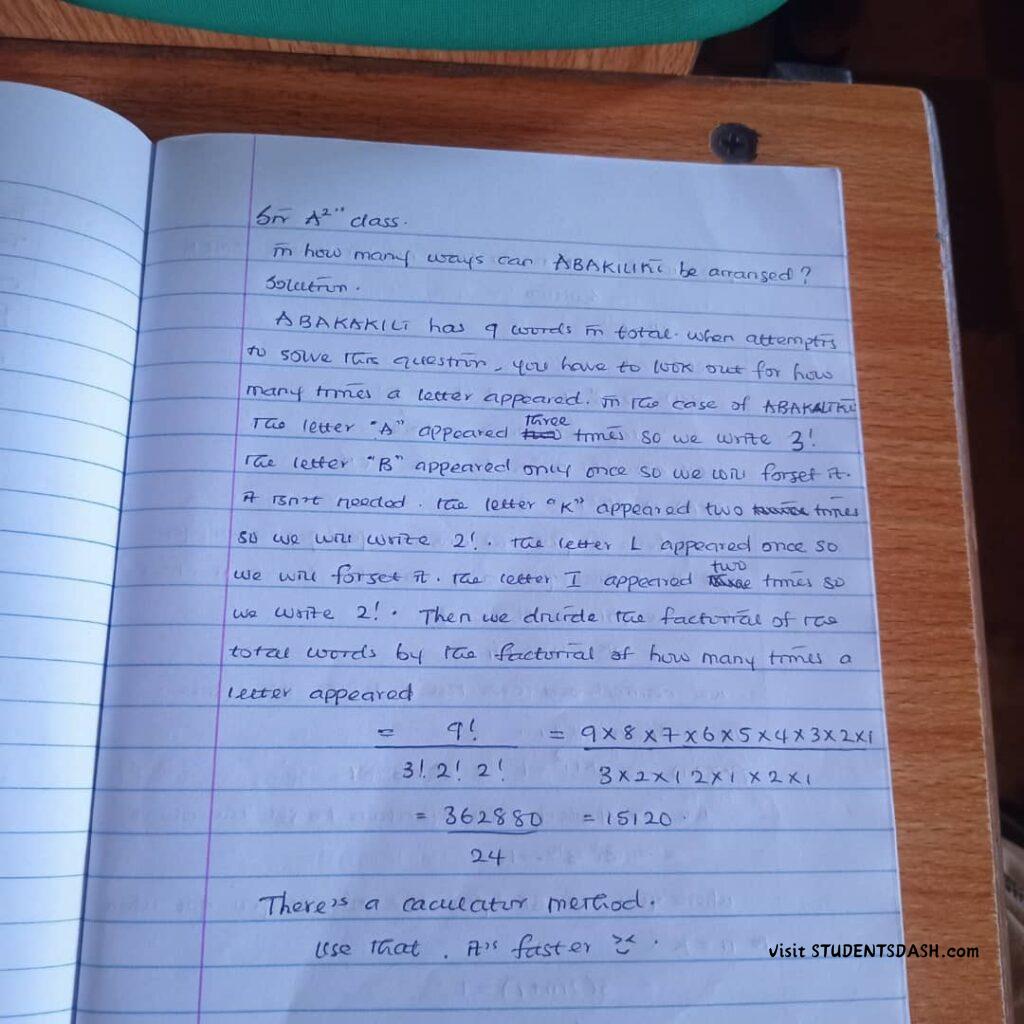 Sir A²'s class.
in how many ways can ABAKILIKI be arranged?
Solution.
ABAKAKILI has 9 words in total. when attemptis
to solve this question, you have to look out for how
many times a letter appeared. in the case of ABAKALIKI
The letter "A" appeared three times so we write 3!
The letter "B" appeared only once so we will forget it.
it isn't needed. The letter "K" appeared two times
so we will write 2!. The letter L appeared once so
we will forget it. The letter I appeared two times so
we write 2!. Then we divide the factorial of the
total words by the factorial of how many times a
letter appeared
= 9! = 9×8×7×6×5×4×3×2×1
3! 2! 2! 3×2×1 2×1×2×1
= 362880 = 15120.
24
There's a caculator method.
Use that. it's faster .
visit STUDENTSDASH.com